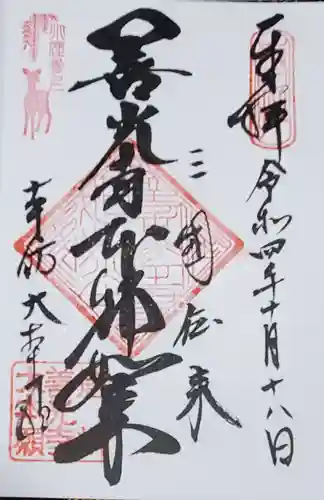 奉拝
令和四年十月十八日
三國伝来
善光寺本師如来
本坊 大本願